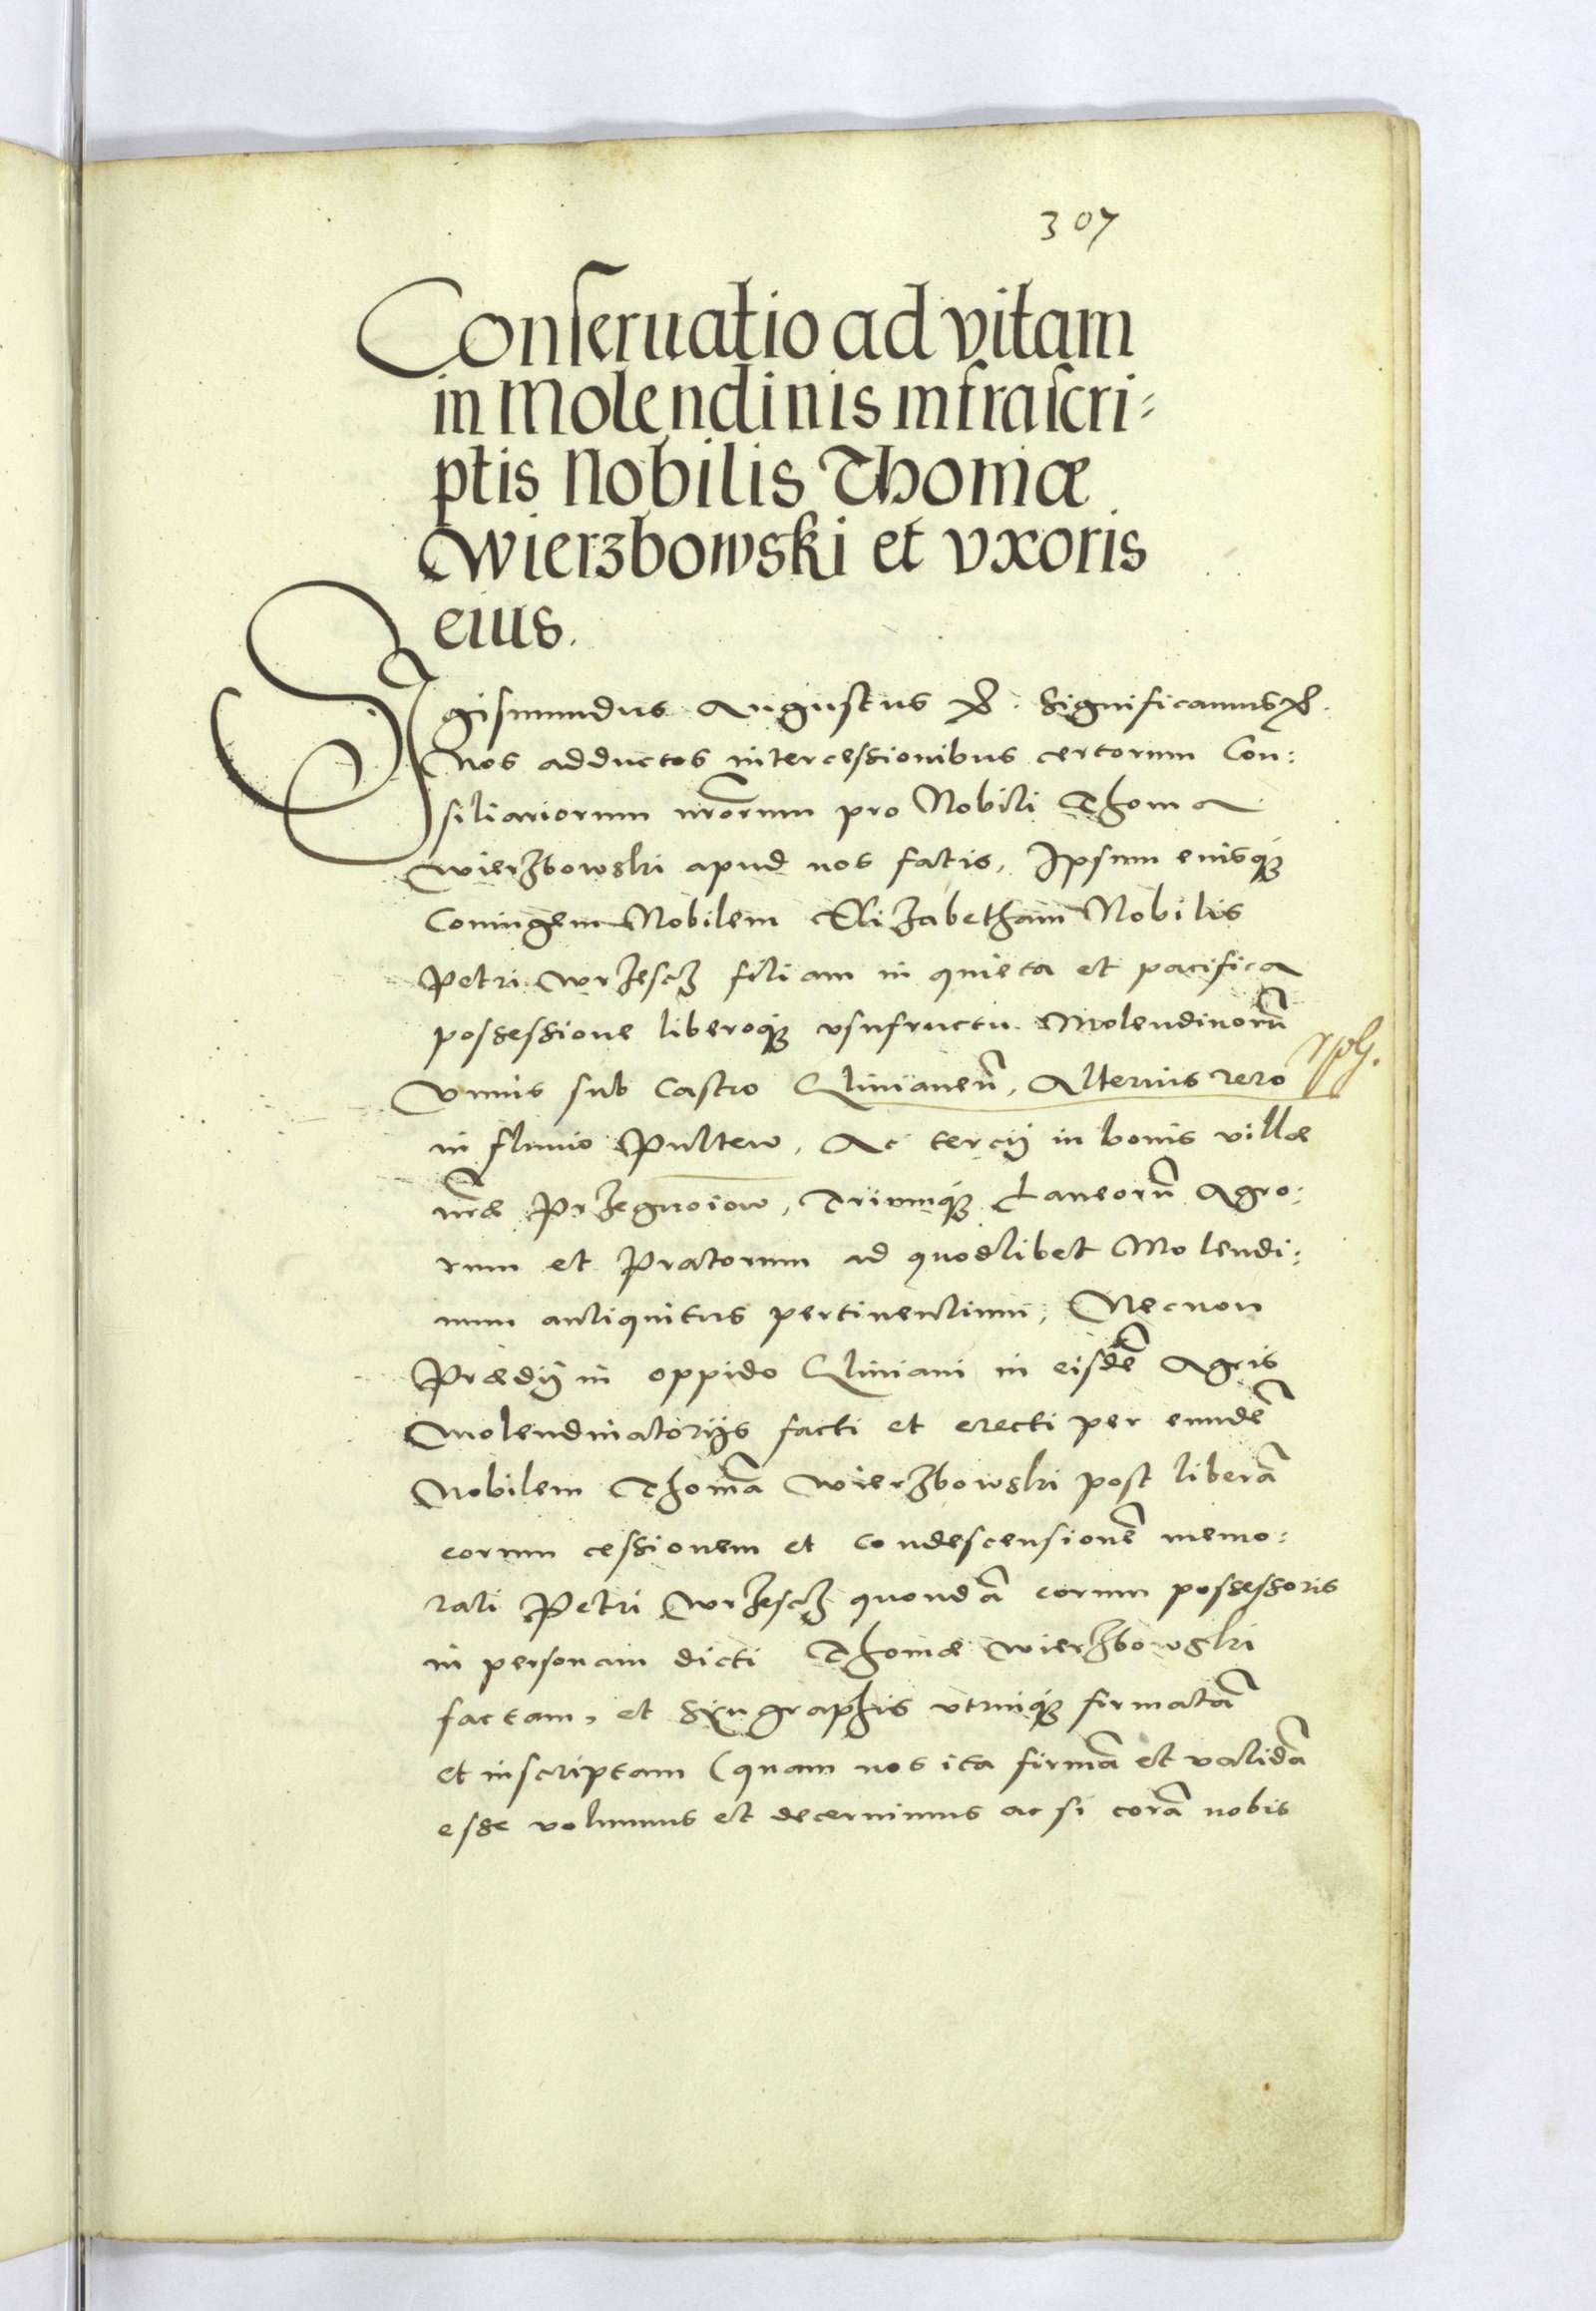 307
Conseruatio ad vitam
in Molendinis infrascri-
ptis Nobilis Thomæ
Wierzbowski et vxoris
eius.
Sigismundus Augustus &. Significamus &.
Nos adductos intercessionibus certorum Con:
siliariorum nr̃orum pro Nobili Thoma
Wierzbowski apud nos factis, Ipsum eiusq3
Coniugem Nobilem Elizabetham Nobilis
Petri Wrzescz filiam in quieta et pacifica
possessione liberoq3 vsufructu Molendinorũ
Vnius sub Castro Glinianeñ, Alterius vero
in fluuio Pultew, Ac tercij in bonis villæ
nr̃æ Przegnoiow, Triumq3 Laneorũ Agro:
rum et Pratorum ad quodlibet Molendi:
num antiquitus pertinentium, Necnon
Prædij in oppido Gliniani in eisdẽ Agris
Molendinatorijs facti et erecti per eundẽ
Nobilem Thomã Wierzbowski post liberã
eorum cessionem et condescensionẽ memo:
rati Petri Wrzescz quondã eorum possessoris
in personam dicti Thomæ Wierzbowski
factam, et Syngraphis vtrinq3 firmatã
et inscriptam (quam nos ita firmã et validã
esse volumus et decernimus ac si corã nobis